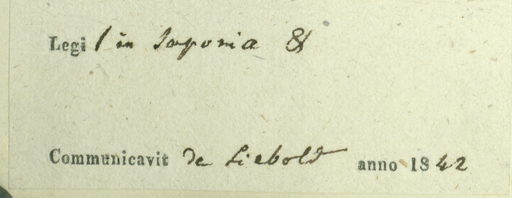 Legi in Japonia &
Communicavit de Siebold anno 1842